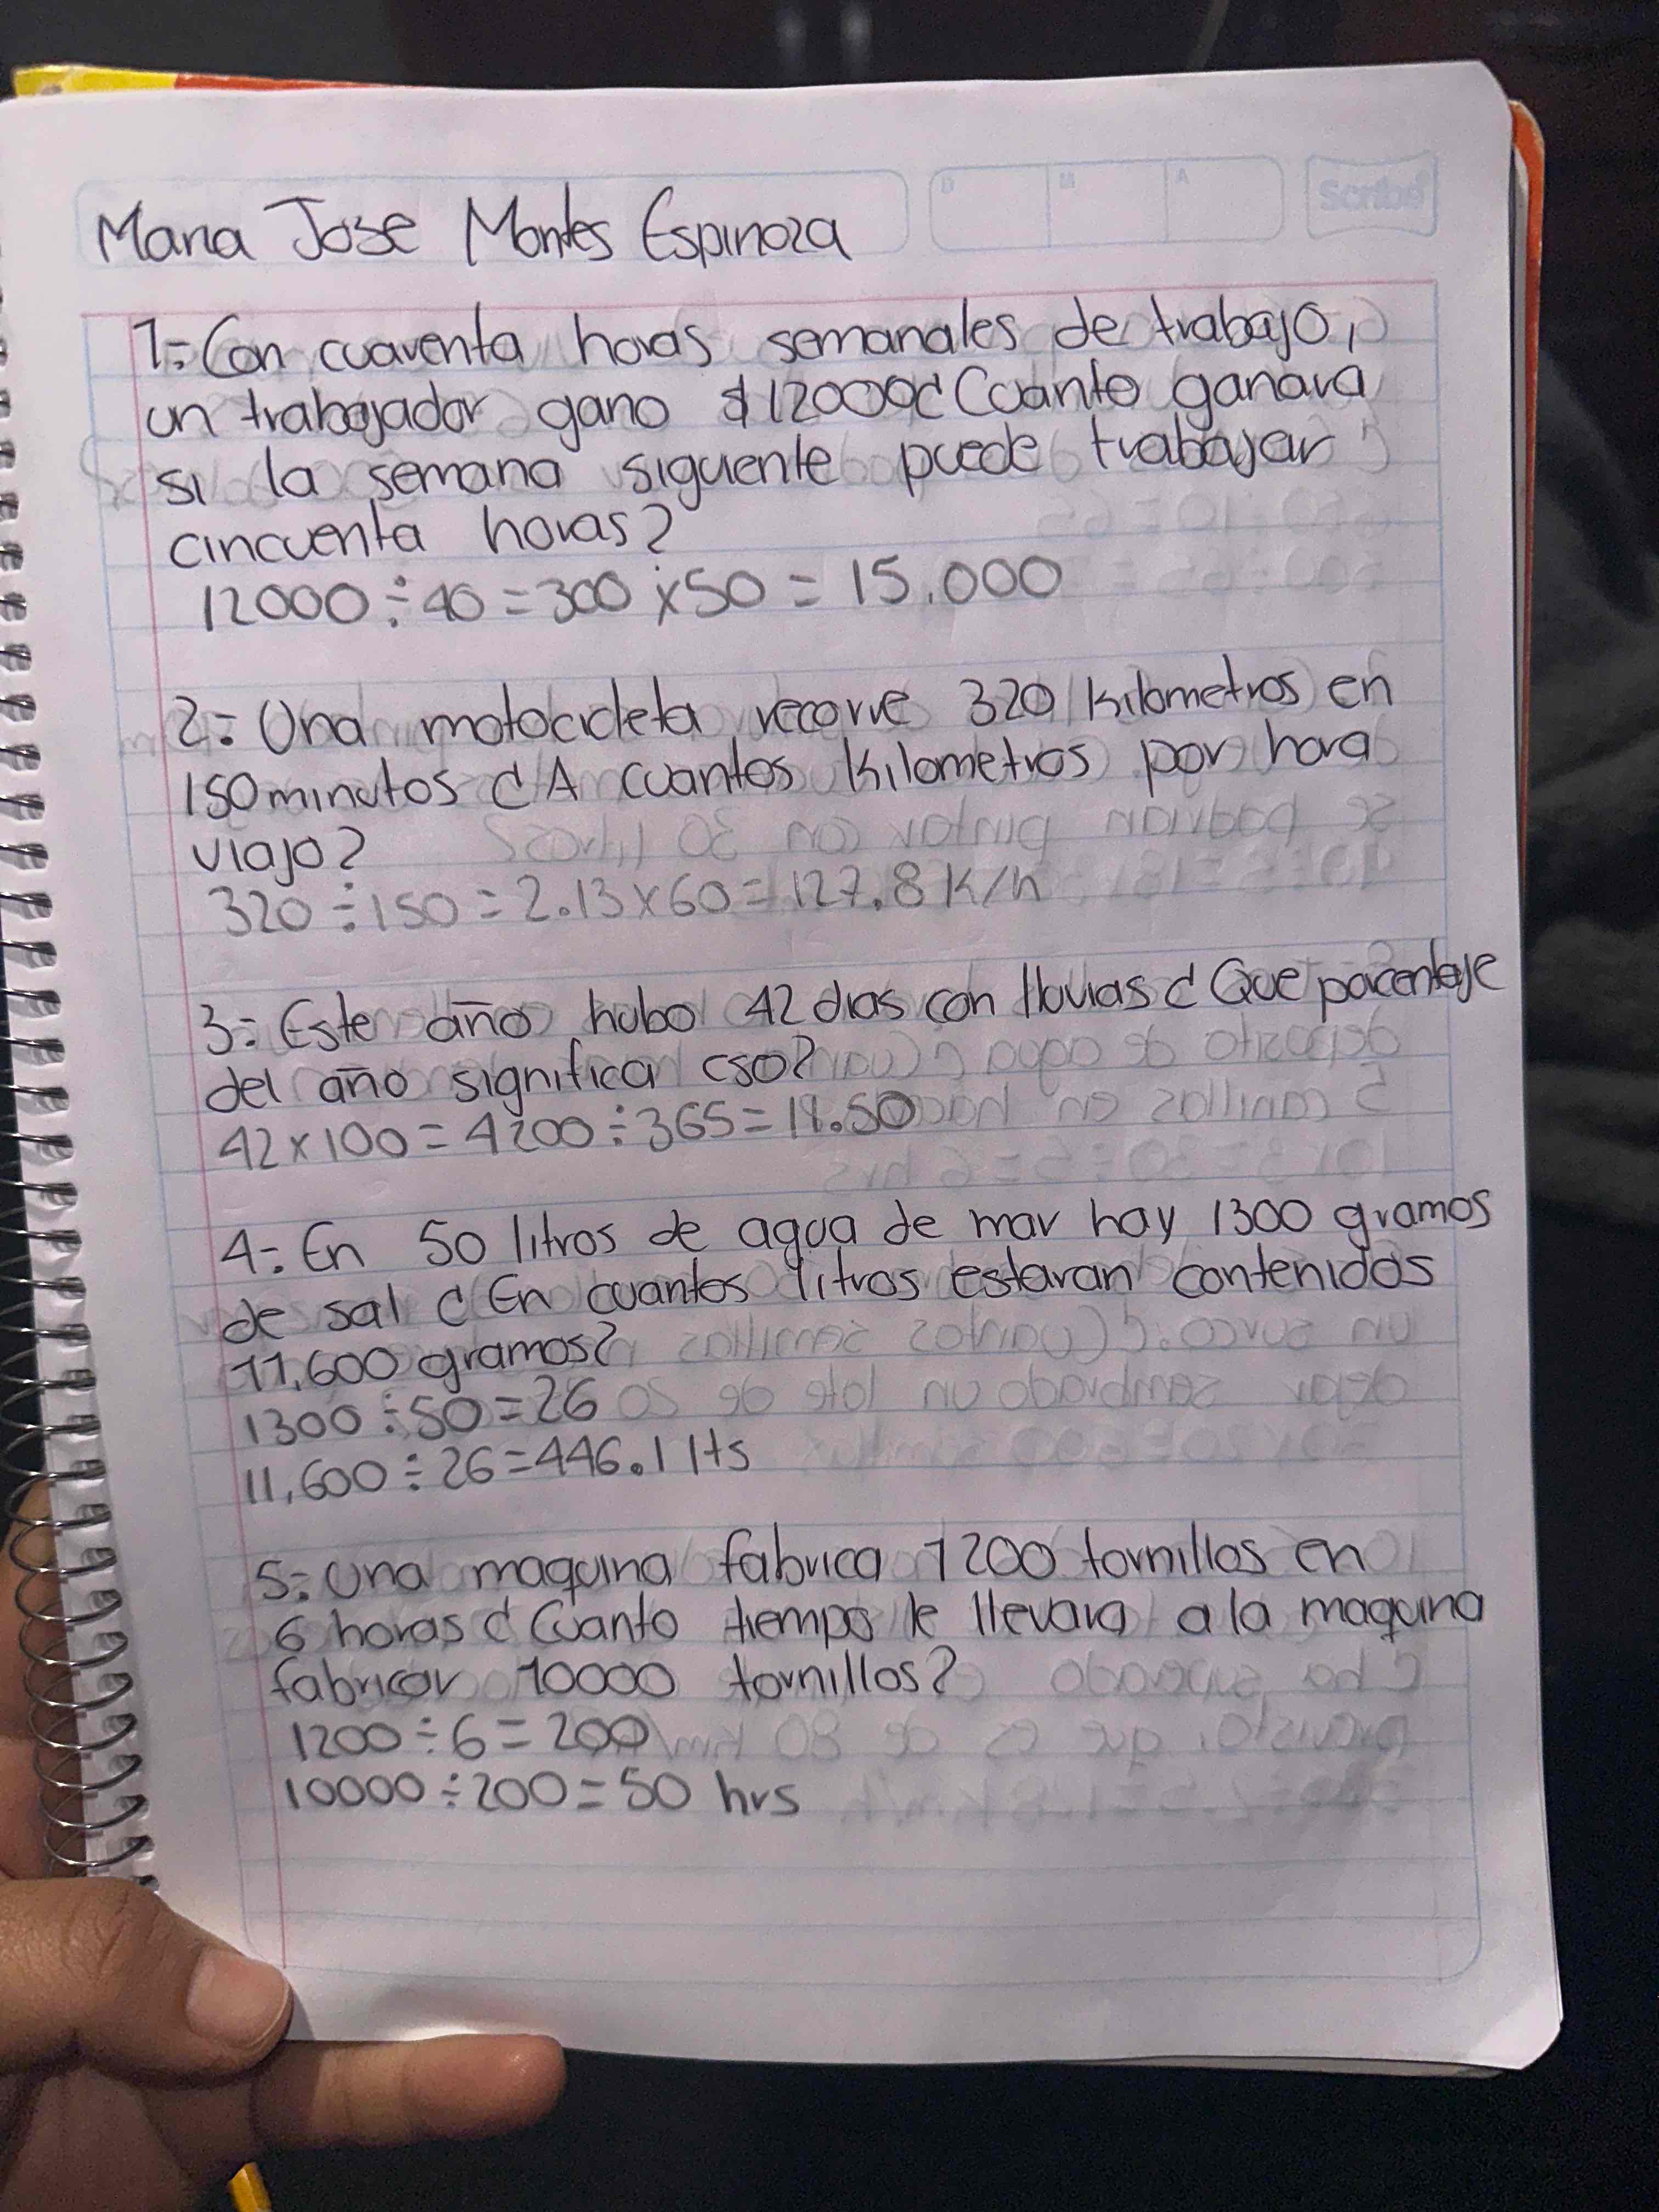 Maria Jose Montes Espinoza
D M A
Scribe
1.- Con cuarenta horas semanales de trabajo,
un trabajador gano $12000 ¿Cuanto ganara
si la semana siguiente puede trabajar
cincuenta horas?
12000 ÷ 40 = 300 x 50 = 15.000
2.- Una motocicleta recorre 320 kilometros en
150 minutos ¿A cuantos kilometros por hora
viajo?
320 ÷ 150 = 2.13 x 60 = 127.8 K/h
3.- Este año hubo 42 dias con lluvias ¿Que porcentaje
del año significa eso?
42 x 100 = 4200 ÷ 365 = 11.50
4.- En 50 litros de agua de mar hay 1300 gramos
de sal ¿En cuantos litros estaran contenidos
11,600 gramos?
1300 ÷ 50 = 26
11,600 ÷ 26 = 446.1 lts
5.- Una maquina fabrica 1200 tornillos en
6 horas ¿Cuanto tiempo le llevara a la maquina
fabricar 10000 tornillos?
1200 ÷ 6 = 200
10000 ÷ 200 = 50 hrs